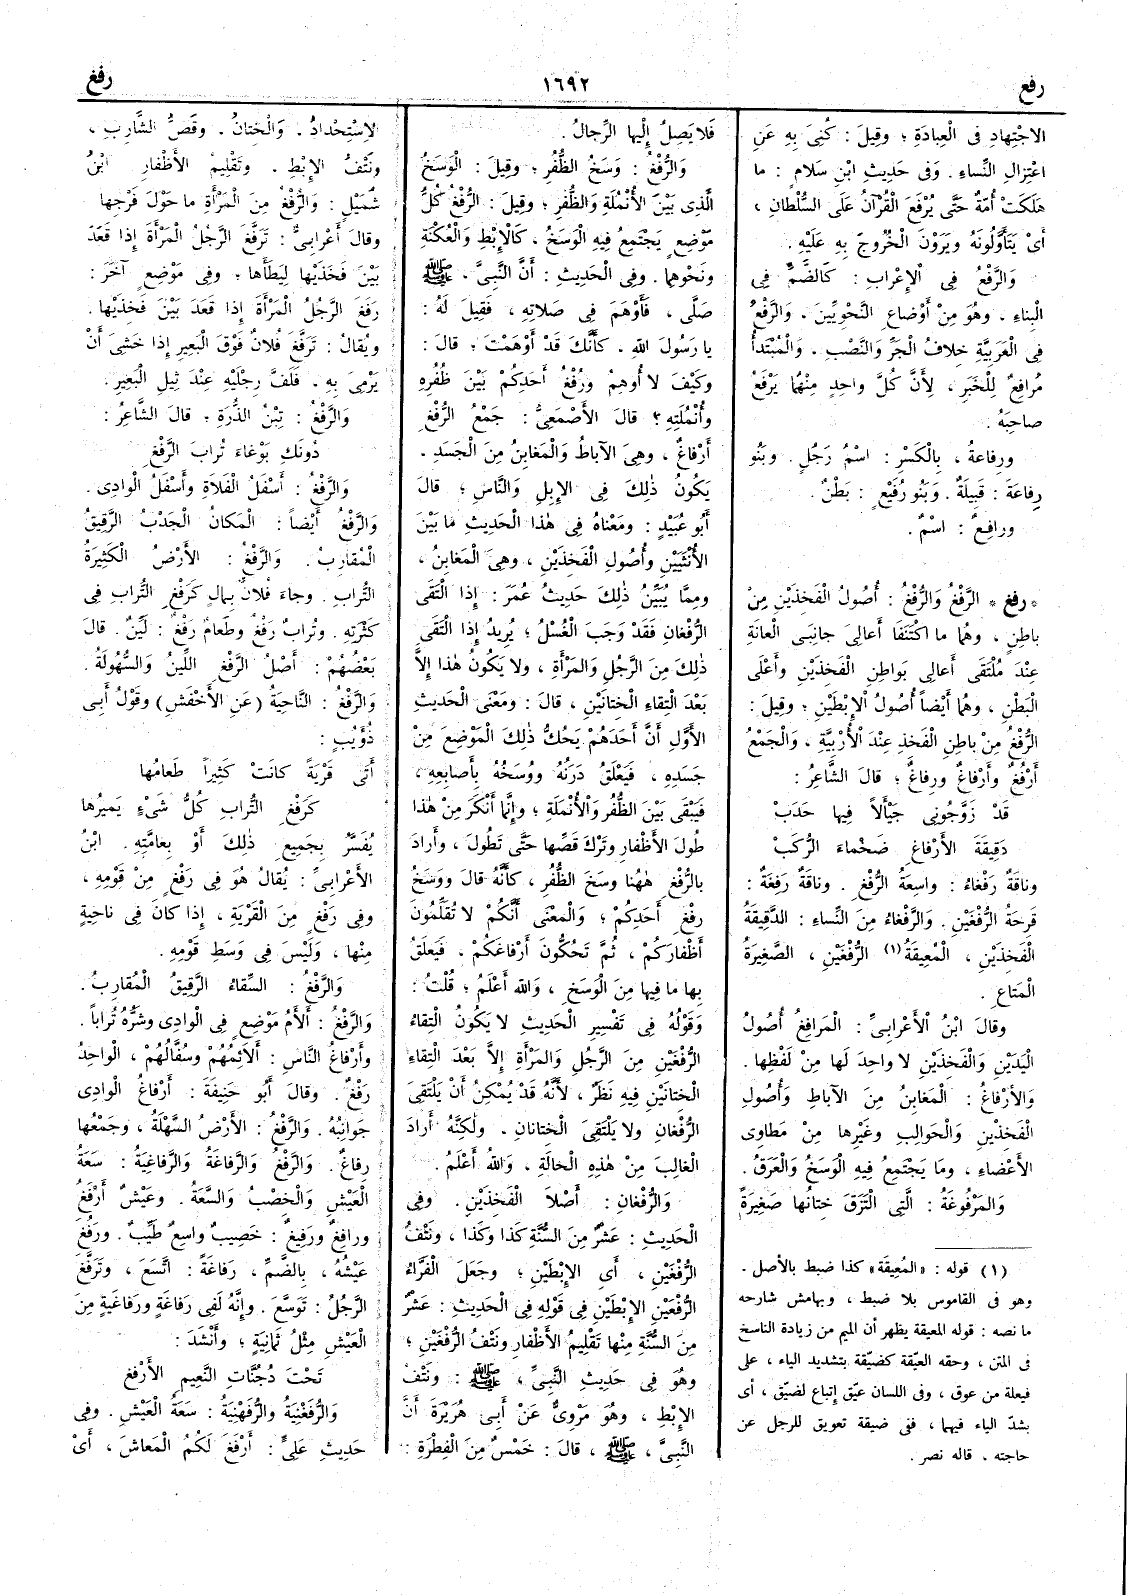 رفع
١٦٩٢
رفغ
الاجْتِهادِ فى الْعِبادَةِ ؛ وقِيلَ : كُنِىَ بِهِ عَنِ
اعْتِزالِ النِّساءِ . وَفى حَدِيثِ ابْنِ سَلَامٍ : ما
هَلَكَتْ أُمَّةٌ حَتَّى يُرْفَعَ الْقُرْآنُ عَلَى السُّلْطانِ ،
أَىْ يَتَأَوَّلُونَهُ ويَرَوْنَ الْخُرُوجَ بِهِ عَلَيْهِ .
وَالرَّفْعُ فِى الْإِعْرابِ : كَالضَّمِّ فِى
الْبِناءِ ، وهُوَ مِنْ أَوْضاعِ النَّحْوِيِّينَ ، وَالرَّفْعُ
فِى الْعَرَبِيَّةِ خِلافُ الْجَرِّ وَالنَّصْبِ . وَالْمُبْتَدَأُ
مُرافِعٌ لِلْخَبَرِ ، لِأَنَّ كُلَّ واحِدٍ مِنْهُما يَرْفَعُ
صاحِبَهُ .
ورِفاعَةُ ، بِالْكَسْرِ : اسْمُ رَجُلٍ . وبَنُو
رِفاعَةَ : قَبِيلَةٌ . وَبَنُو رُفَيْعٍ : بَطْنٌ .
ورافِعٌ : اسْمٌ .
* رفغ * الرَّفْغُ وَالرُّفْغُ : أُصُولُ الْفَخِذَيْنِ مِنْ
باطِنٍ ، وهُما ما اكْتَنَفَا أَعالِىَ جانِبَىِ الْعانَةِ
عِنْدَ مُلْتَقَى أَعالِى بَواطِنِ الْفَخِذَيْنِ وَأَعْلَى
الْبَطْنِ ، وهُما أَيْضاً أُصُولُ الْإِبْطَيْنِ ؛ وقِيلَ :
الرُّفْغُ مِنْ باطِنِ الْفَخِذِ عِنْدَ الْأُرْبِيَّةِ ، وَالْجَمْعُ
أَرْفُغٌ وأَرْفاغٌ ورِفاغٌ ؛ قالَ الشَّاعِرُ :
قَدْ زَوَّجُونِى جَيْأَلاً فِيها حَدَبْ
دَقِيقَةَ الأَرْفاغِ ضَخْماءَ الرَّكَبْ
وناقَةٌ رَفْغاءُ : واسِعَةُ الرُّفْغِ . وناقَةٌ رَفِغَةٌ :
قَرِحَةُ الرُّفْغَيْنِ . وَالرَّفْغاءُ مِنَ النِّساءِ : الدَّقِيقَةُ
الْفَخِذَيْنِ ، الْمُعِيقَةُ (١) الرُّفْغَيْنِ ، الصَّغِيرَةُ
الْمَتاعِ .
وقالَ ابْنُ الْأَعْرابِىِّ : الْمَرافِغُ أُصُولُ
الْيَدَيْنِ وَالْفَخِذَيْنِ لا واحِدَ لَها مِنْ لَفْظِها .
وَالْأَرْفاغُ : الْمَغابِنُ مِنَ الآباطِ وَأُصُولِ
الْفَخِذَيْنِ وَالْحَوالِبِ وغَيْرِها مِنْ مَطاوِى
الأَعْضاءِ ، وما يَجْتَمِعُ فِيهِ الْوَسَخُ وَالْعَرَقُ .
وَالْمَرْفُوغَةُ : الَّتِى الْتَزَقَ خِتانُها صَغِيرَةً
(١) قوله : «المُعِيقَة» كذا ضبط بالأصل .
وهو فى القاموس بلا ضبط ، وبهامش شارحه
ما نصه : قوله المعيقة يظهر أن الميم من زيادة الناسخ
فى المتن ، وحقه العيّقة كضيّقة بتشديد الياء ، على
فيعلة من عوق ، وفى اللسان عيّق إتباع لضيّق ، أى
بشدّ الياء فيهما ، ففى ضيقة تعويق للرجل عن
حاجته ، قاله نصر .
فَلا يَصِلُ إِلَيْها الرِّجالُ .
وَالرُّفْغُ : وَسَخُ الظُّفُرِ ؛ وقِيلَ : الْوَسَخُ
الَّذِى بَيْنَ الأُنْمُلَةِ وَالظُّفُرِ ؛ وقِيلَ : الرُّفْغُ كُلُّ
مَوْضِعٍ يَجْتَمِعُ فِيهِ الْوَسَخُ ، كَالْإِبْطِ وَالْعُكْنَةِ
ونَحْوِهِما . وفِى الْحَدِيثِ : أَنَّ النَّبِىَّ ، ﷺ
صَلَّى ، فَأَوْهَمَ فِى صَلاتِهِ ، فَقِيلَ لَهُ :
يا رَسُولَ اللهِ . كَأَنَّكَ قَدْ أَوْهَمْتَ ؛ قالَ :
وكَيْفَ لا أُوهِمُ ورُفْغُ أَحَدِكُمْ بَيْنَ ظُفُرِهِ
وأُنْمُلَتِهِ ؟ قالَ الأَصْمَعِىُّ : جَمْعُ الرُّفْغِ
أَرْفاغٌ ، وهِىَ الآباطُ وَالْمَغابِنُ مِنَ الْجَسَدِ .
يَكُونُ ذٰلِكَ فِى الإِبِلِ وَالنَّاسِ ؛ قالَ
أَبُو عُبَيْدٍ : ومَعْناهُ فِى هٰذا الْحَدِيثِ ما بَيْنَ
الأُنْثَيَيْنِ وأُصُولِ الْفَخِذَيْنِ ، وهِىَ الْمَغابِنُ ،
ومِمَّا يُبَيِّنُ ذٰلِكَ حَدِيثُ عُمَرَ : إِذا الْتَقَى
الرُّفْغانِ فَقَدْ وَجَبَ الْغُسْلُ ؛ يُرِيدُ إِذا الْتَقَى
ذٰلِكَ مِنَ الرَّجُلِ وَالْمَرْأَةِ ، ولا يَكُونُ هٰذا إِلَّا
بَعْدَ الْتِقاءِ الْخِتانَيْنِ ، قالَ : ومَعْنَى الْحَدِيثِ
الأَوَّلِ أَنَّ أَحَدَهُمْ يَحُكُّ ذٰلِكَ الْمَوْضِعَ مِنْ
جَسَدِهِ ، فَيَعْلَقُ دَرَنُهُ ووَسَخُهُ بِأَصابِعِهِ ،
فَيَبْقَى بَيْنَ الظُّفُرِ وَالْأُنْمُلَةِ ؛ وإِنَّما أَنْكَرَ مِنْ هٰذا
طُولَ الأَظْفارِ وتَرْكَ قَصِّها حَتَّى تَطُولَ ، وأَرادَ
بِالرُّفْغِ هٰهُنا وَسَخَ الظُّفُرِ ، كَأَنَّهُ قالَ ووَسَخُ
رفْغِ أَحَدِكُمْ ؛ وَالْمَعْنَى أَنَّكُمْ لا تُقَلِّمُونَ
أَظْفارَكُمْ ، ثُمَّ تَحُكُّونَ أَرْفاغَكُمْ ، فَيَعْلَقُ
بِها ما فِيها مِنَ الْوَسَخِ ، وَاللهُ أَعْلَمُ ؛ قُلْتُ :
وَقَوْلُهُ فِى تَفْسِيرِ الْحَدِيثِ لا يَكُونُ الْتِقاءُ
الرُّفْغَيْنِ مِنَ الرَّجُلِ وَالْمَرْأَةِ إِلَّا بَعْدَ الْتِقاءِ
الْخِتانَيْنِ فِيهِ نَظَرٌ ، لأَنَّهُ قَدْ يُمْكِنُ أَنْ يَلْتَقِىَ
الرُّفْغانِ ولا يَلْتَقِىَ الْخِتانانِ . ولٰكِنَّهُ أَرادَ
الْغالِبَ مِنْ هٰذِهِ الْحالَةِ ، وَاللهُ أَعْلَمُ .
وَالرُّفْغانِ : أَصْلَا الْفَخِذَيْنِ . وفِى
الْحَدِيثِ : عَشْرٌ مِنَ السُّنَّةِ كَذا وَكَذا ، ونَتْفُ
الرُّفْغَيْنِ ، أَىِ الإِبْطَيْنِ ؛ وجَعَلَ الْفَرَّاءُ
الرُّفْغَيْنِ الإِبْطَيْنِ فِى قَوْلِهِ فِى الْحَدِيثِ : عَشْرٌ
مِنَ السُّنَّةِ مِنْها تَقْلِيمُ الأَظْفارِ ونَتْفُ الرُّفْغَيْنِ ؛
وهُوَ فِى حَدِيثِ النَّبِىِّ ، ﷺ : ونَتْفُ
الإِبْطِ ، وهُوَ مَرْوِىٌّ عَنْ أَبِى هُرَيْرَةَ أَنَّ
النَّبِىَّ ، ﷺ ، قالَ : خَمْسٌ مِنَ الْفِطْرَةِ :
الاسْتِحْدادُ . وَالْخِتانُ . وقَصُّ الشَّارِبِ ،
ونَتْفُ الإِبْطِ . وَتَقْلِيمُ الأَظْفارِ ابْنُ
شُمَيْلٍ : وَالرُّفْغُ مِنَ الْمَرْأَةِ ما حَوْلَ فَرْجِها
وقالَ أَعْرابِىٌّ : تَرَفَّغَ الرَّجُلُ الْمَرْأَةَ إِذا قَعَدَ
بَيْنَ فَخِذَيْها لِيَطَأَها ؛ وفِى مَوْضِعٍ آخَرَ :
رَفَغَ الرَّجُلُ الْمَرْأَةَ إِذا قَعَدَ بَيْنَ فَخِذَيْها .
ويُقالُ : تَرَفَّغَ فُلانٌ فَوْقَ الْبَعِيرِ إِذا خَشِىَ أَنْ
يَرْمِىَ بِهِ . فَلَفَّ رِجْلَيْهِ عِنْدَ ثِيلِ الْبَعِيرِ .
وَالرَّفْغُ : تِبْنُ الذُّرَةِ ؛ قالَ الشَّاعِرُ :
دُونَكِ بَوْغاءَ تُرابَ الرَّفْغِ
وَالرَّفْغُ : أَسْفَلُ الْفَلاةِ وأَسْفَلُ الْوادِى .
وَالرَّفْغُ أَيْضاً : الْمَكانُ الْجَدْبُ الرَّقِيقُ
الْمُقارِبُ . وَالرَّفْغُ : الأَرْضُ الْكَثِيرَةُ
التُّرابِ . وجاءَ فُلانٌ بِمالٍ كَرَفْغِ التُّرابِ فِى
كَثْرَتِهِ . وتُرابٌ رَفْغٌ وطَعامٌ رَفْغٌ : لَيِّنٌ . قالَ
بَعْضُهُمْ : أَصْلُ الرَّفْغِ اللِّينُ وَالسُّهُولَةُ .
وَالرَّفْغُ : النَّاحِيَةُ (عَنِ الأَخْفَشِ) وقَوْلُ أَبِى
ذُؤَيْبٍ :
أَتَى قَرْيَةً كانَتْ كَثِيراً طَعامُها
كَرَفْغِ التُّرابِ كُلُّ شَىْءٍ يَمِيرُها
يُفَسَّرُ بِجَمِيعِ ذٰلِكَ أَوْ بِعامَّتِهِ . ابْنُ
الأَعْرابِىِّ : يُقالُ هُوَ فِى رَفْغٍ مِنْ قَوْمِهِ ،
وفِى رَفْغٍ مِنَ الْقَرْيَةِ ، إِذا كانَ فِى ناحِيَةٍ
مِنْها ، وَلَيْسَ فِى وَسَطِ قَوْمِهِ .
وَالرَّفْغُ : السِّقاءُ الرَّقِيقُ الْمُقارِبُ .
وَالرَّفْغُ : أَلْأَمُ مَوْضِعٍ فِى الْوادِى وشَرُّهُ تُراباً .
وأَرْفاغُ النَّاسِ : أَلائِمُهُمْ وسُفَّالُهُمْ ، الْواحِدُ
رَفْغٌ . وقالَ أَبُو حَنِيفَةَ : أَرْفاغُ الْوادِى
جَوانِبُهُ . وَالرَّفْغُ : الأَرْضُ السَّهْلَةُ ، وجَمْعُها
رِفاغٌ . وَالرَّفْغُ وَالرَّفاغَةُ وَالرَّفاغِيَةُ : سَعَةُ
الْعَيْشِ وَالْخِصْبُ وَالسَّعَةُ . وعَيْشٌ أَرْفَغُ
ورافِغٌ ورَفِيغٌ : خَصِيبٌ واسِعٌ طَيِّبٌ . ورَفُغَ
عَيْشُهُ ، بِالضَّمِّ ، رَفاغَةً : اتَّسَعَ ، وتَرَفَّغَ
الرَّجُلُ : تَوَسَّعَ . وإِنَّهُ لَفِى رَفاغَةٍ ورَفاغِيَةٍ مِنَ
الْعَيْشِ مِثْلُ ثَمانِيَةٍ ؛ وأَنْشَدَ :
تَحْتَ دُجُنَّاتِ النَّعِيمِ الأَرْفَغِ
وَالرُّفَغْنِيَةُ وَالرُّفَهْنِيَةُ : سَعَةُ الْعَيْشِ . وفِى
حَدِيثِ عَلِىٍّ : أَرْفَغَ لَكُمُ الْمَعاشَ ، أَىْ